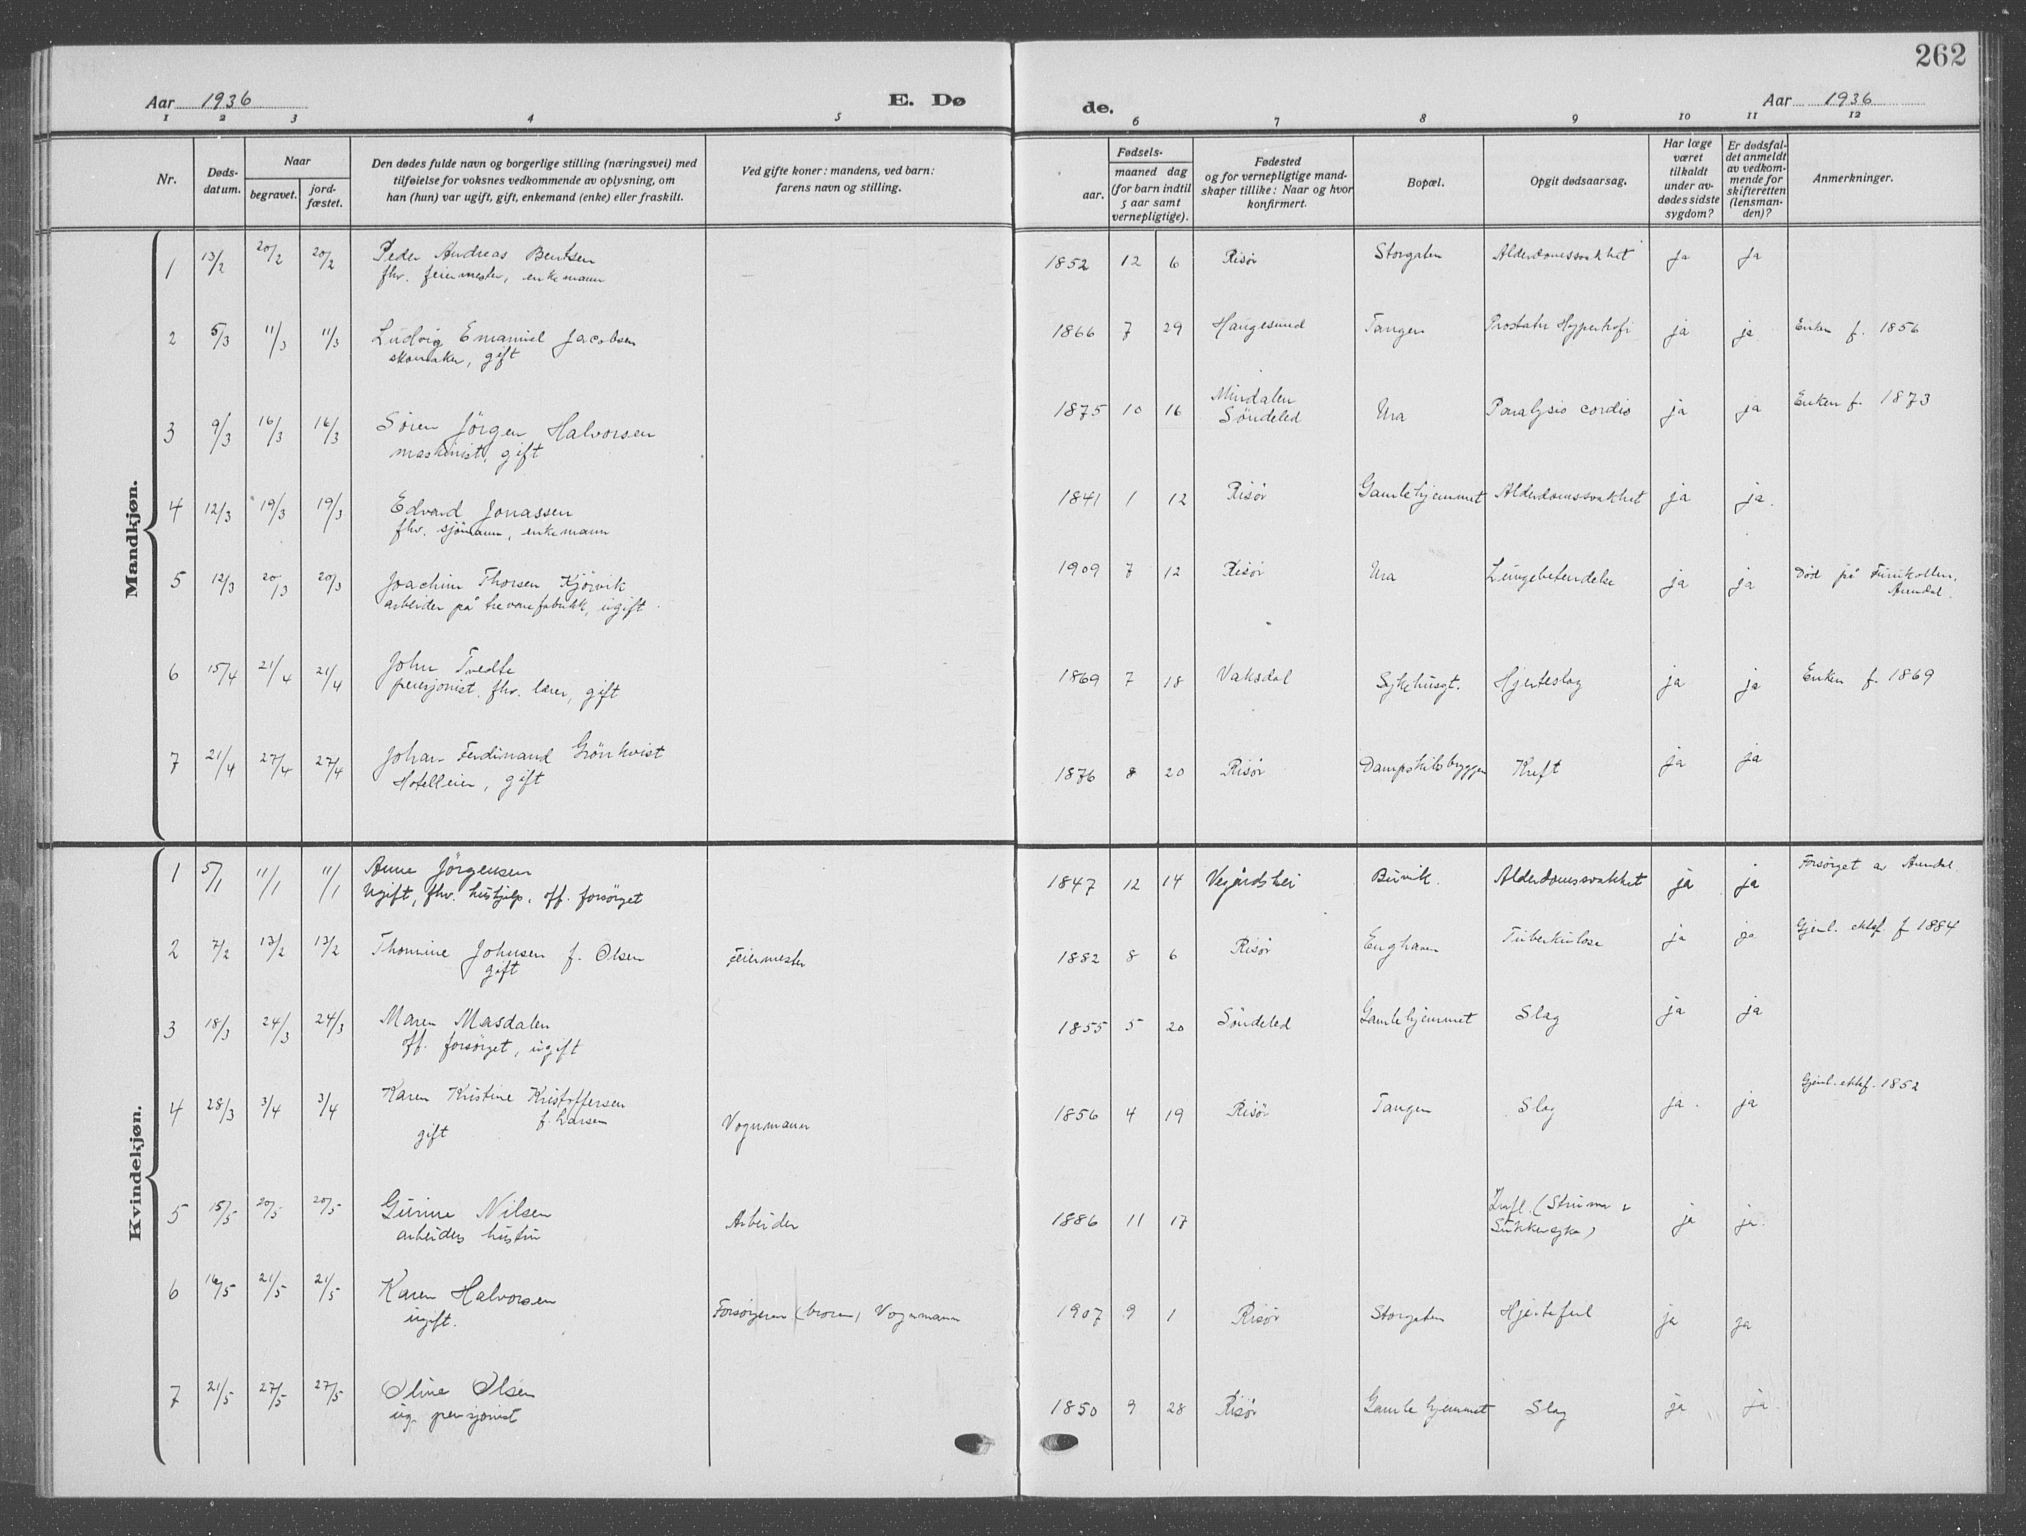 262
Aar 1936
E. Dø
de.
Aar 1936
1 2 3 4 5 6 7 8 9 10 11 12
Nr.
Døds-
datum.
Naar
begravet.
jord-
fæstet.
Den dødes fulde navn og borgerlige stilling (næringsvei) med
tilføielse for voksnes vedkommende av oplysning, om
han (hun) var ugift, gift, enkemand (enke) eller fraskilt.
Ved gifte koner: mandens, ved barn:
farens navn og stilling.
Fødsels-
aar.
maaned dag
(for barn indtil
5 aar samt
vernepligtige).
Fødested
og for vernepligtige mand-
skaper tillike: Naar og hvor
konfirmert.
Bopæl.
Opgit dødsaarsag.
Har læge
været
tilkaldt
under av-
dødes sidste
sygdom?
Er dødsfal-
det anmeldt
av vedkom-
mende for
skifteretten
(lensman-
den)?
Anmerkninger.
Mandkjøn.
1 13/2 20/2 20/2 Peder Andreas Bentsen 1852 12 6 Risør Storgaten Alderdomssvakhet ja ja
fhv. feiermester, enkemann
2 5/3 11/3 11/3 Ludvig Emanuel Jacobsen 1866 7 29 Haugesund Tangen Prostata Hypertrofi ja ja Enken f. 1856
skomaker, gift
3 9/3 16/3 16/3 Søren Jörgen Halvorsen 1875 10 16 Mindalen Ura Paralysis cordis ja ja Enken f. 1873
maskinist, gift Söndeled
4 12/3 19/3 19/3 Edvard Jonassen 1841 1 12 Risør Gamlehjemmet Alderdomssvakhet ja ja.
fhv. sjömann, enkemann
5 12/3 20/3 20/3 Joachim Thorsen Kjörvik 1909 7 12 Risør Ura Lungebetendelse ja ja Död på Furukollen,
arbeider på trevarefabrikk, ugift. Arendal.
6 15/4 21/4 21/4 John Tvedte 1869 7 18 Vaksdal Sykehusgt. Hjerteslag ja ja Enken f. 1869
pensjonist, fhv. lærer, gift
7 21/4 27/4 27/4 Johan Ferdinand Grönkvist 1876 8 20 Risør Dampskibsbryggen Kreft ja ja
Hotelleier, gift
Kvindekjøn.
1 5/1 11/1 11/1 Anne Jörgensen 1847 12 14 Vegårdshei Buvik. Alderdomssvakhet ja ja Forsørget av Arendal
Ugift, fhv. hushjelp, off. forsörget
2 7/2 13/2 13/2 Thomine Johnsen f. Olsen Feiermester 1882 8 6 Risør Enghaven Tuberkulose ja ja Gjenl. ektef. f 1884
gift
3 18/3 24/3 24/3 Maren Masdalen 1855 5 20 Söndeled Gamlehjemmet Slag ja ja
off. forsörget, ugift
4 28/3 3/4 3/4 Karen Kristine Kristoffersen Vognmann 1856 4 19 Risør Tangen Slag ja. ja Gjenl. ektef. 1852
gift f. Larsen
5 15/5 20/5 20/5 Gunne Nilsen Arbeider 1886 11 17 (Struma & ja ja.
arbeiders hustru Sukkersyke)
6 16/5 21/5 21/5 Karen Halvorsen Forsörgeren (broren) Vognmann 1907 9 1 Risør Storgaten Hjertefeil ja ja
ugift.
7 21/5 27/5 27/5 Oline Olsen 1850 9 28 Risør Gamlehjemmet Slag ja ja.
ug. pensjonist